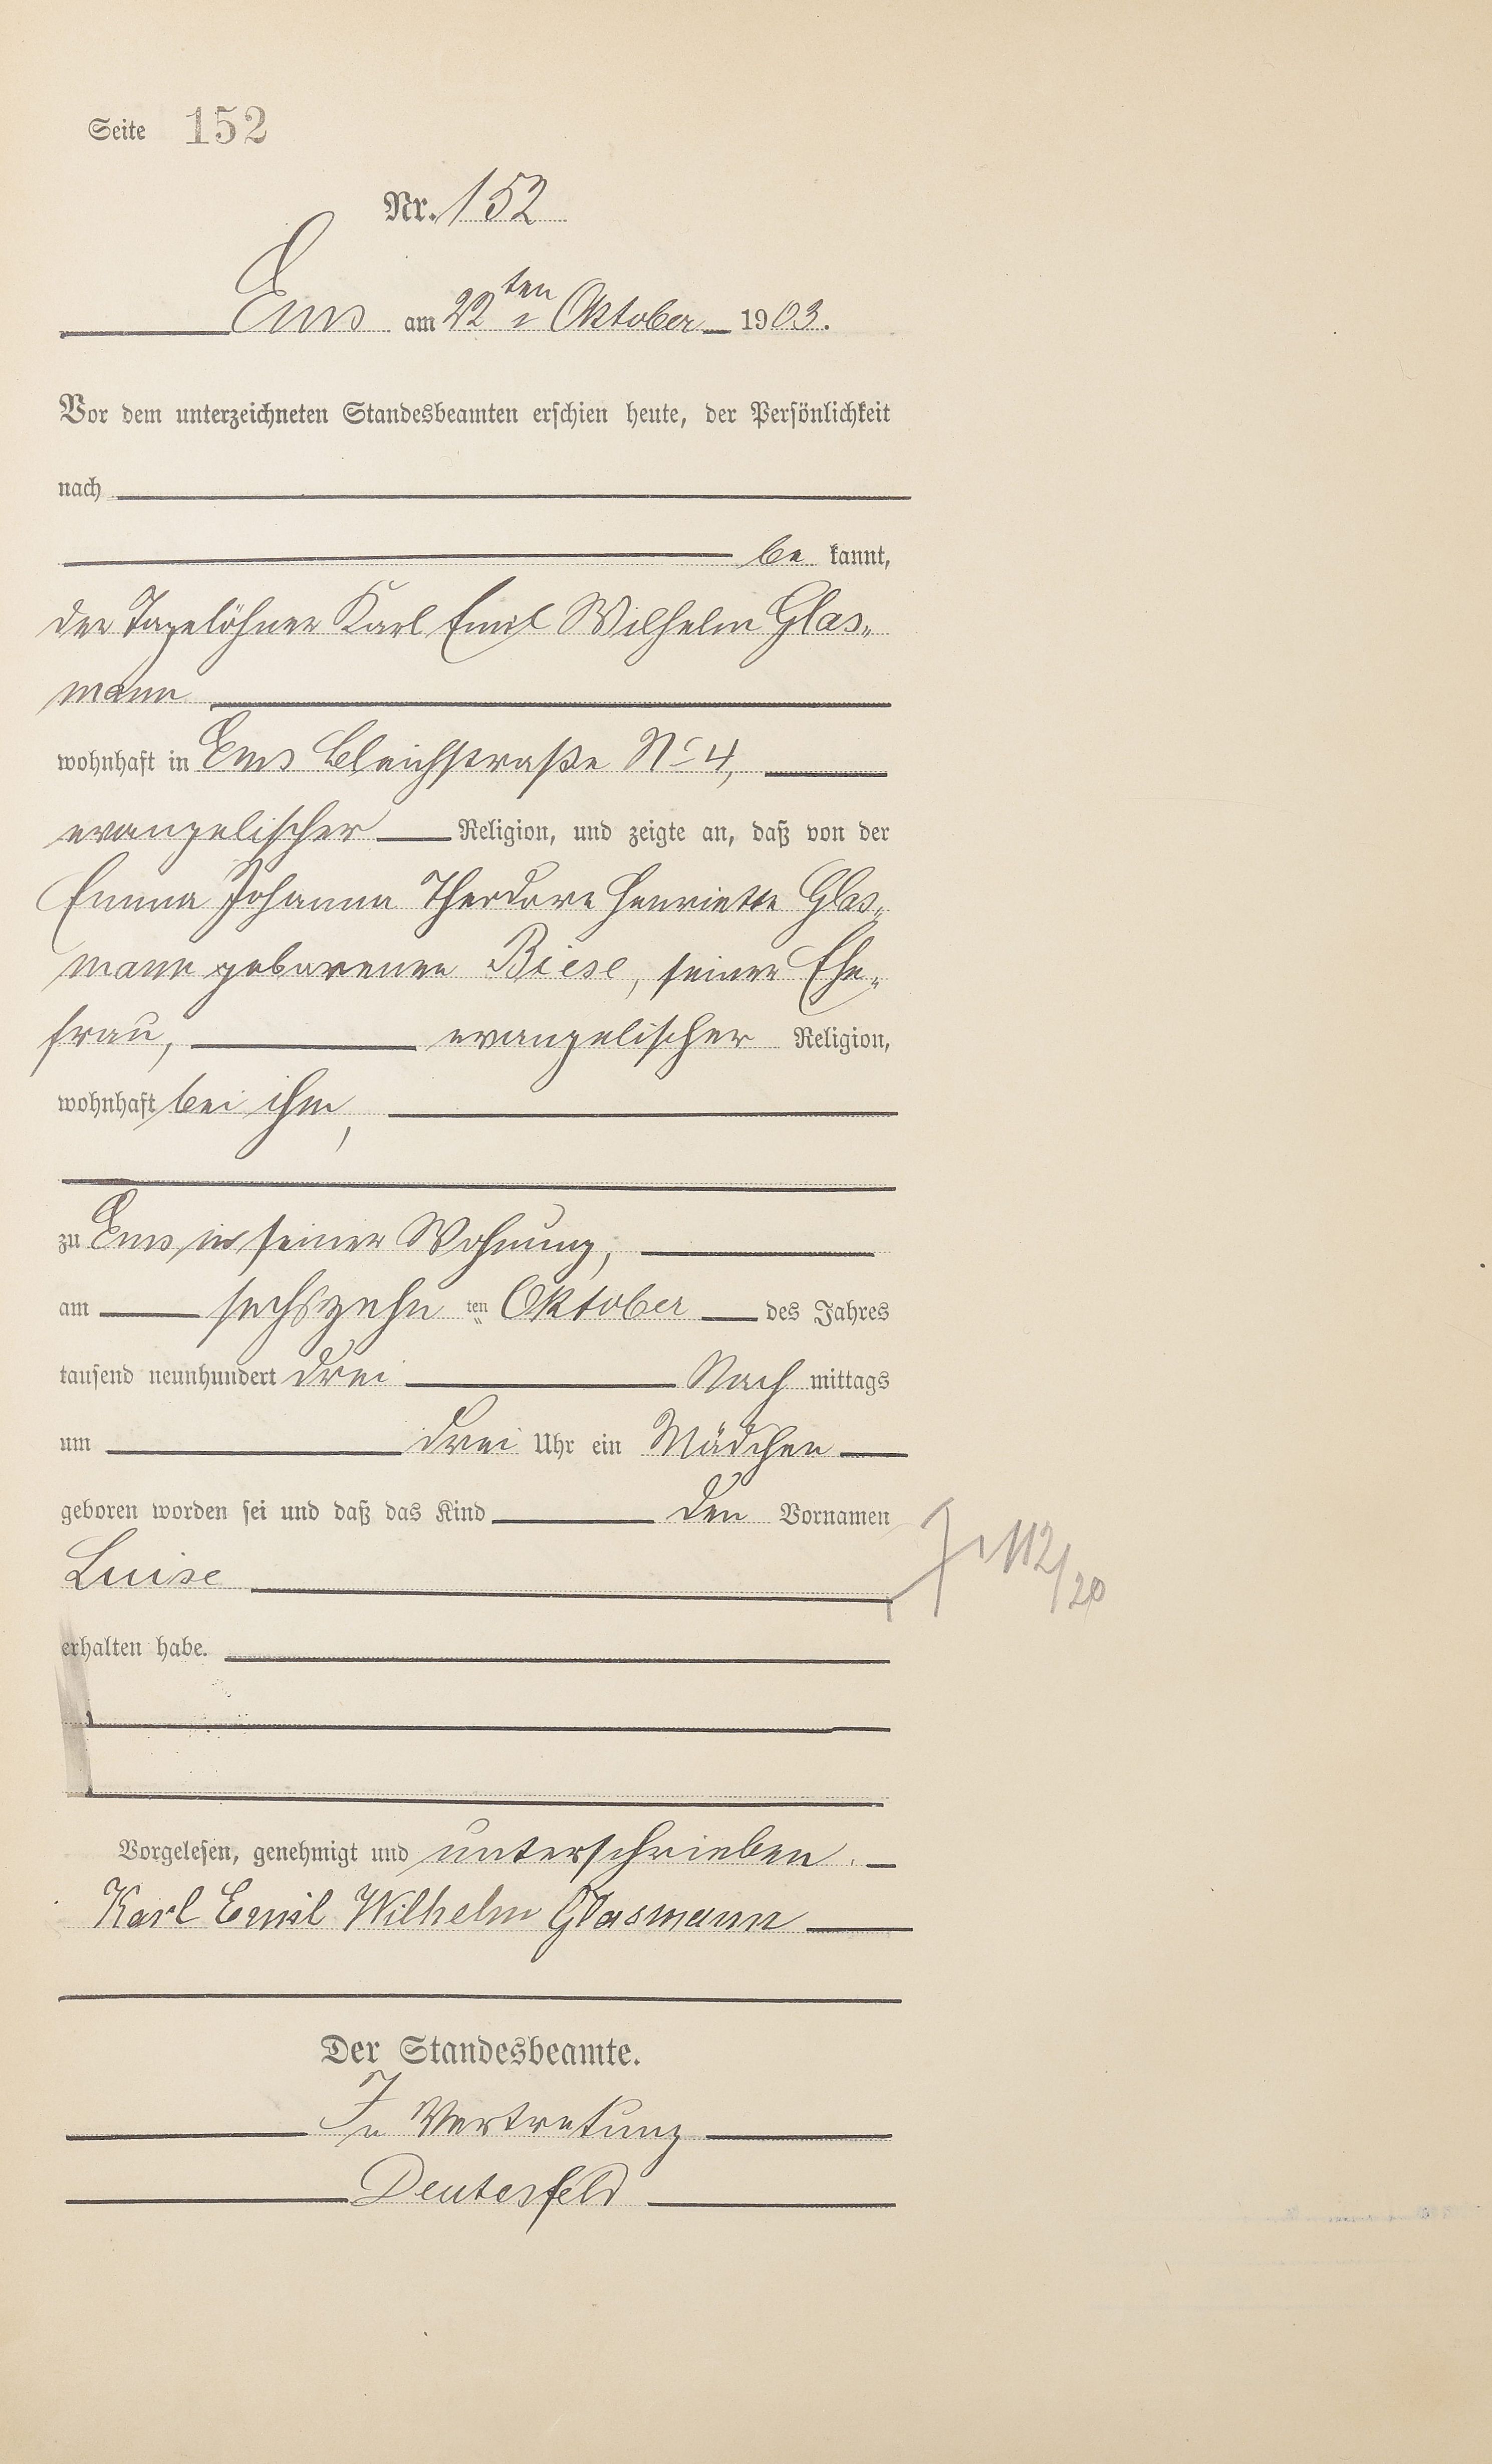 Seite 152
Nr. 152
Ems am 22ten Oktober 1903.
Vor dem unterzeichneten Standesbeamten erschien heute, der Persönlichkeit
nach
be kannt,
der Tagelöhner Karl Emil Wilhelm Glas„
mann
wohnhaft in Ems Bleichstraße No 4,
evangelischer Religion, und zeigte an, daß von der
Emma Johanna Theodore Henriette Glas„
mann geborenen Biese, seiner Ehe„
frau, evangelischer Religion,
wohnhaft bei ihm,
zu Ems in seiner Wohnung,
am sechszehn ten Oktober des Jahres
tausend neunhundert drei Nach mittags
um drei Uhr ein Mädchen
geboren worden sei und daß das Kind den Vornamen
Luise
erhalten habe.
Vorgelesen, genehmigt und unterschrieben.
Karl Emil Wilhelm Glasmann
Der Standesbeamte.
In Vertretung
Deutesfeld